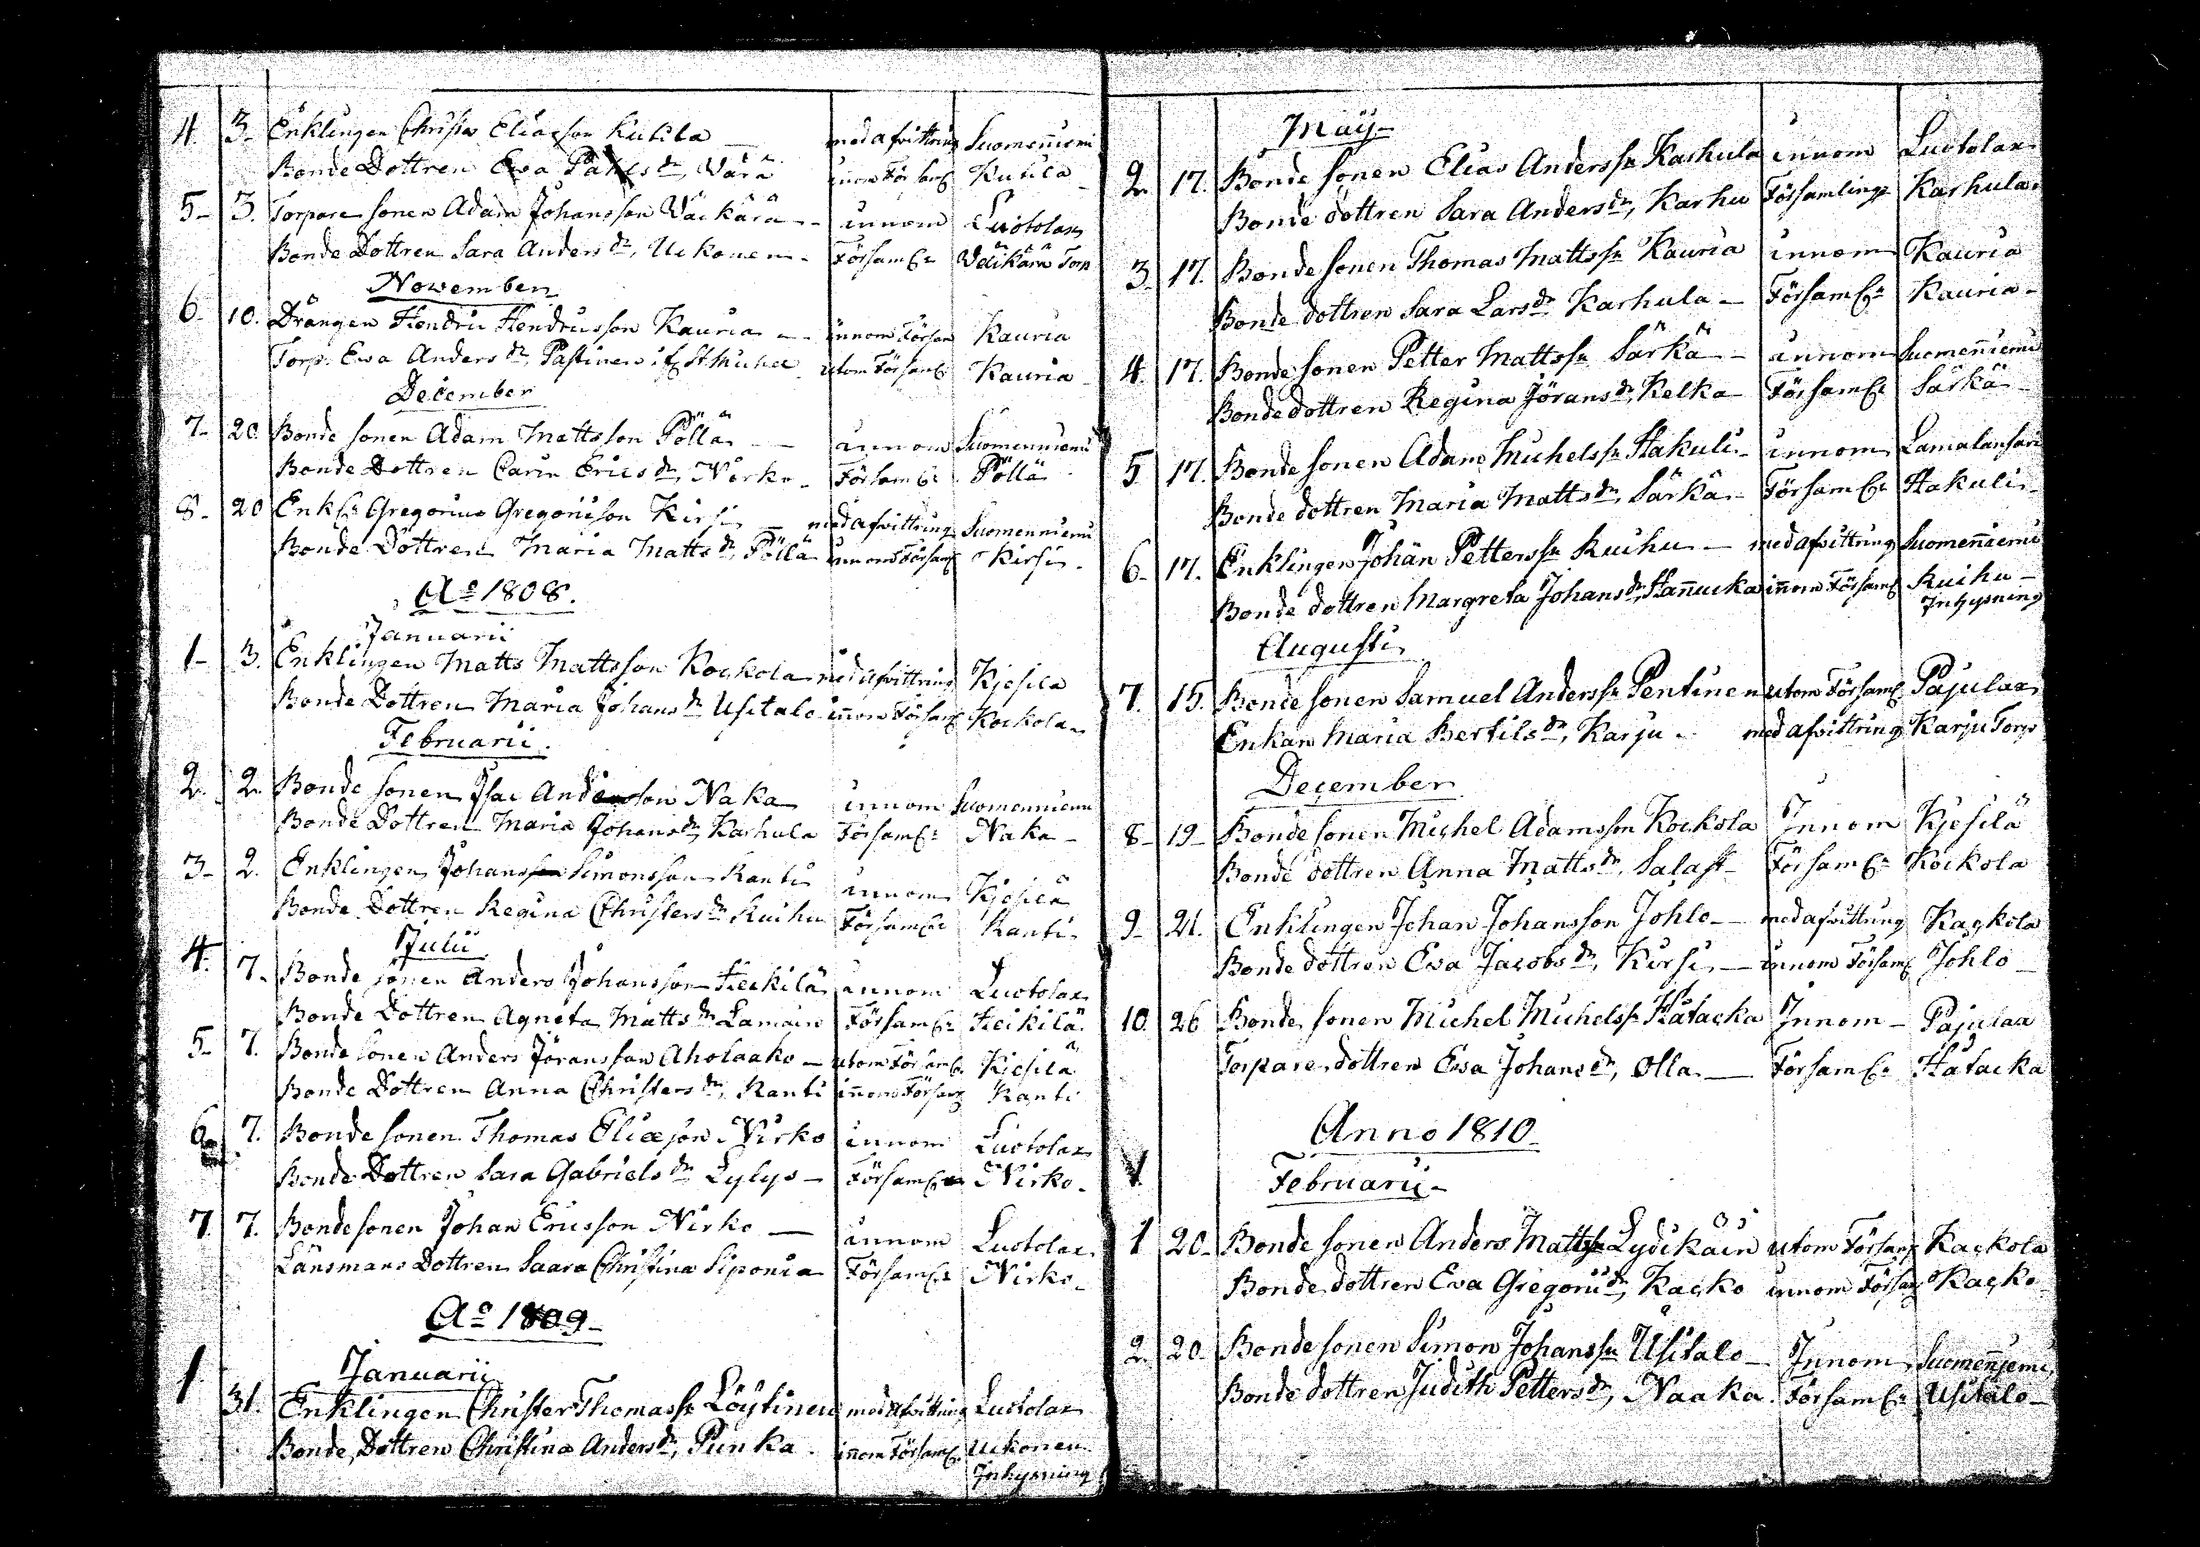 4. 3. Enklingen Christer Eliasson Kutila — med afvittring Suomenniemi
Bonde Dottren Ewa Pahls dr, Värä innom Församl Kutila
5. 3. Torpare sonen Adam Johansson Väikärä innom Luotolax
Bonde Dottren Sara Anders dr, Uckonen Församl: Väikärä Torp
November
6. 10. Drängen Hendric Hendricsson Kauria innom Församl Kauria
Torp. Ewa Anders dr Pastinen if St Michel utom Församl Kauria
December
7. 20. Bonde sonen Adam Mattsson Pöllä — innom Suomenniemi
Bonde Dottren Carin Erics dr, Nirko Församl: Pöllä
8. 20 Enkl: Gregorius Gregorisson Kirsi — med afvittring Suomenniemi
Bonde Dottren Maria Matts dr, Pöllä innom Församl Kirsi
Ao 1808.
Januarii
1. 3. Enklingen Matts Mattsson Kockola med afvittring Kjesilä
Bonde Dottren Maria Johans dr Usitalo innom Församl Kockola
Februarii.
2. 2. Bonde sonen Isac Andersson Naka innom Suomenniemi
Bonde Dottren Maria Johans dr, Karhula Församl: Naka
3. 2. Enklingen Johan Simonsson Kanti innom Kjesilä
Bonde Dottren Regina Christers dr Kuihu Församl: Kanti
Julii
4. 7. Bonde sonen Anders Johansson Heikilä innom Luotolax
Bonde Dottren Agneta Matts dr Lamain Församl: Heikilä
5. 7. Bonde sonen Anders Jöransson Aholaako — utom Församl: Kjesilä
Bonde Dottren Anna Christers dr, Kanti innom Församl Kanti
6. 7. Bonde sonen Thomas Eliæson Nirko innom Luotolax
Bonde Dottren Sara Gabriels dr Lylys — Församl: Nirko
7. 7. Bonde sonen Johan Ericsson Nirko — innom Luotolax
Länsmans Dottren Saara Christina Siponia Församl: Nirko
Ao 1809
Januarii
1 31. Enklingen Christer Thomass: Löytinen med afvittring Luotolax
Bonde Dottren Christina Anders dr, Punka innom Församl: Uckonen
Inhysning
May
2. 17. Bonde sonen Elias Anderss: Karhula innom Luotolax
Bonde dottren Sara Anders dr, Karhu Församlingz Karhula
3. 17. Bonde sonen Thomas Mattss: Kauria innom Kauria
Bonde dottren Sara Lars dr Karhula — Församl: Kauria
4. 17. Bonde sonen Petter Mattss: Särkä — innom Suomenniemi
Bonde dottren Regina Jörans dr, Kelka Församl: Särkä
5 17. Bonde sonen Adam Michelss: Hakuli innom Lamalansari
Bonde dottren Maria Matts dr, Särkä Församl: Hakuli
6. 17. Enklingen Johan Petterss: Kuihu — med afvittring Suomenniemi
Bonde dottren Margreta Johans dr, Hannucka innom Församl Kuihu
Inhysning
Augusti
7. 15. Bonde sonen Samuel Anderss: Pentinen utom Församl: Pajulax
Enkan Maria Bertils dr, Karju med afvittring Karju Torp
December
8. 19. Bonde sonen Michel Adamsson Kockola Innom Kjesilä
Bonde dottren Anna Matts dr, Salast Församl: Kockola
9. 21. Enklingen Johan Johansson Johlo — med afvittring Kackola
Bonde dottren Ewa Jacobs dr, Kirsi — innom Församl Johlo
10. 26 Bonde sonen Michel Michelss: Hatacka Innom Pajulax
Torpare dottren Ewa Johans dr, Olla — Församl: Hatacka
Anno 1810
Februarii
1 20. Bonde sonen Anders Mattss: Lydikäin utom Församl Kackola
Bonde dottren Ewa Gregorii dr, Kacko innom Församl Kacko
2. 20. Bonde sonen Simon Johanss: Usitalo — Innom Suomenniemi
Bonde dottren Judith Petters dr, Naaka Församl: Usitalo